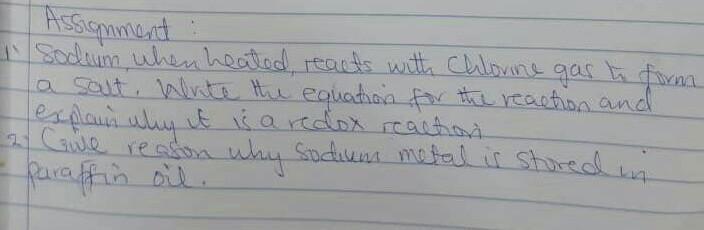 Assignment :
1. Sodium, when heated, reacts with Chlorine gas to form
a salt. Write the equation for the reaction and
explain why it is a redox reaction
2. Give reason why Sodium metal is stored in
paraffin oil.